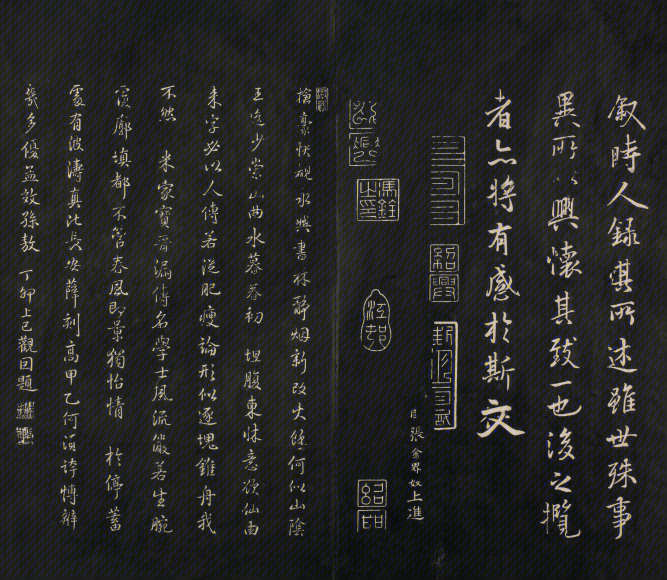 敘時人錄其所述雖世殊事
異所以興懷其致一也後之攬
者亦將有感於斯文
臣張金界奴上進
馮銓之印
紹興
豪快硯永興書林靜烟新改火餘何似山陰
王逸少崇山曲水暮春初 坦腹東牀意欲仙由
来字必以人傳若從肥瘦論形似逐塊錐舟我
不然 米家寶晉漏傳名學士風流儼若生腕
廓填都不管春風即景獨怡情 於停蓄
處有波濤真比長安薛刻高甲乙何須誇博辨
幾多優孟效孫敖 丁卯上巳觀因題